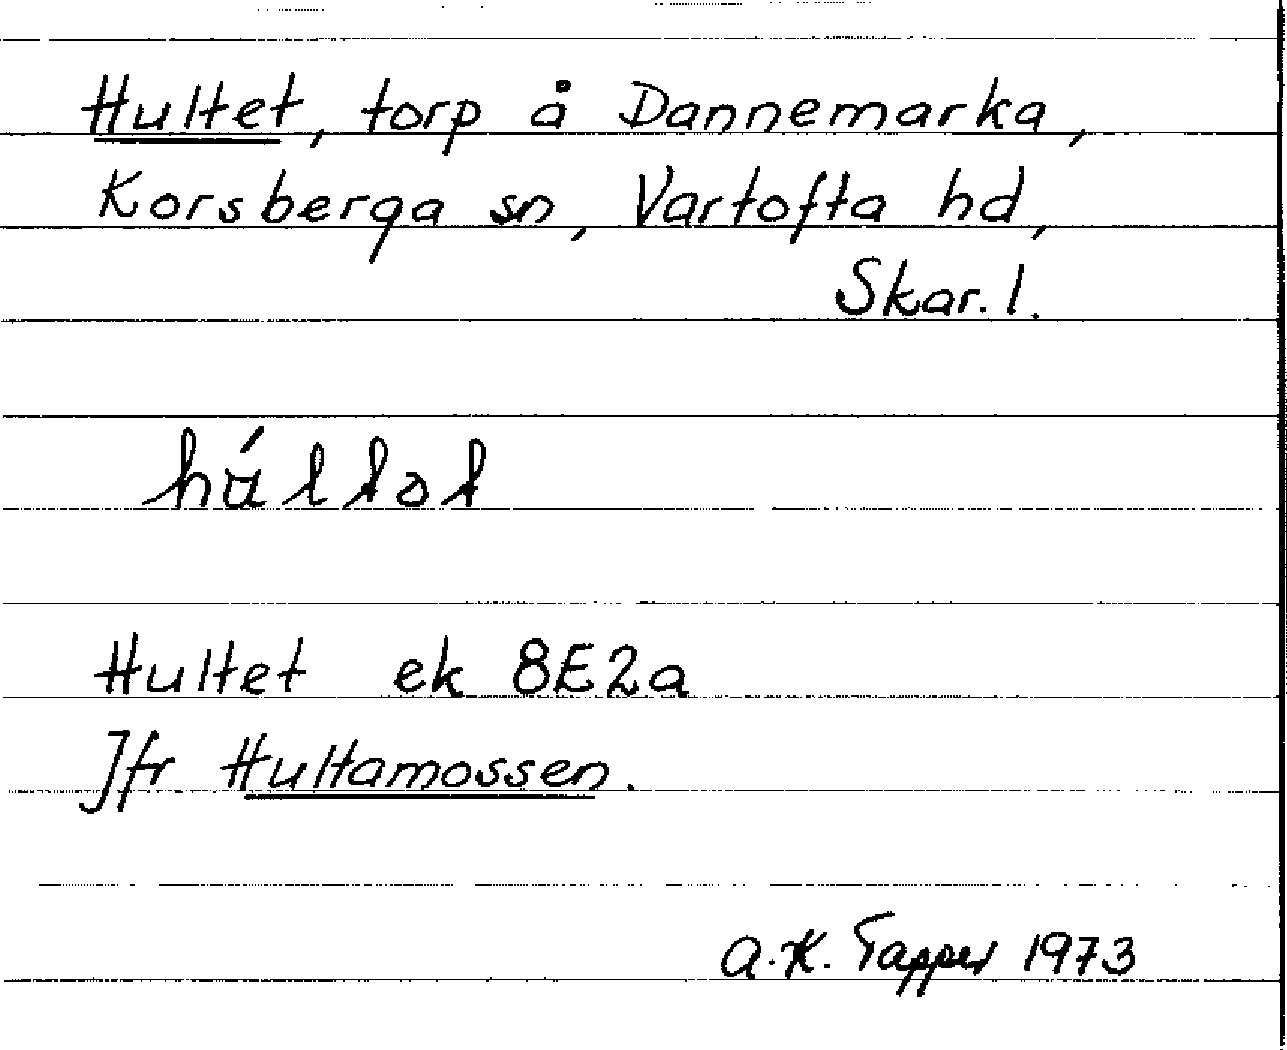 Hultet, torp å Dannemarka,
Korsberga sn, Vartofta hd,
Skar. l.
Hultet ek 8E2a
Jfr Hultamossen.
A.K. Tapper 1973